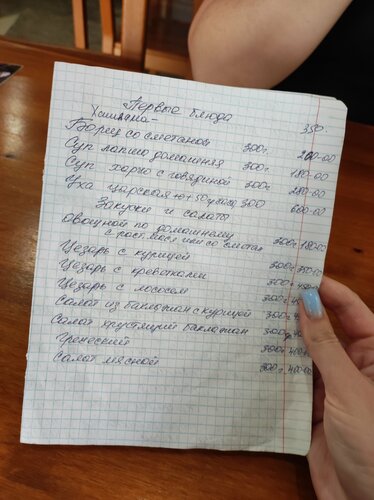 Первые блюда
Хашлама- 350-
Борщ со сметаной 300г. 200-00
Суп лапша домашняя 300г 180-00
Суп харчо с говядиной 300г 280-00
Уха царская 300 600-00
Закуски и салаты
Овощной по домашнему
с раст. масл или со сметан 300г 180-00
Цезарь с курицей 300г 350-00
Цезарь с креветками 300г
Цезарь с лососем 300г
Салат из баклажан с курицей 300г
Салат хрустящий баклажан 300г
Греческий 300г 400-00
Салат мясной 300г 400-00